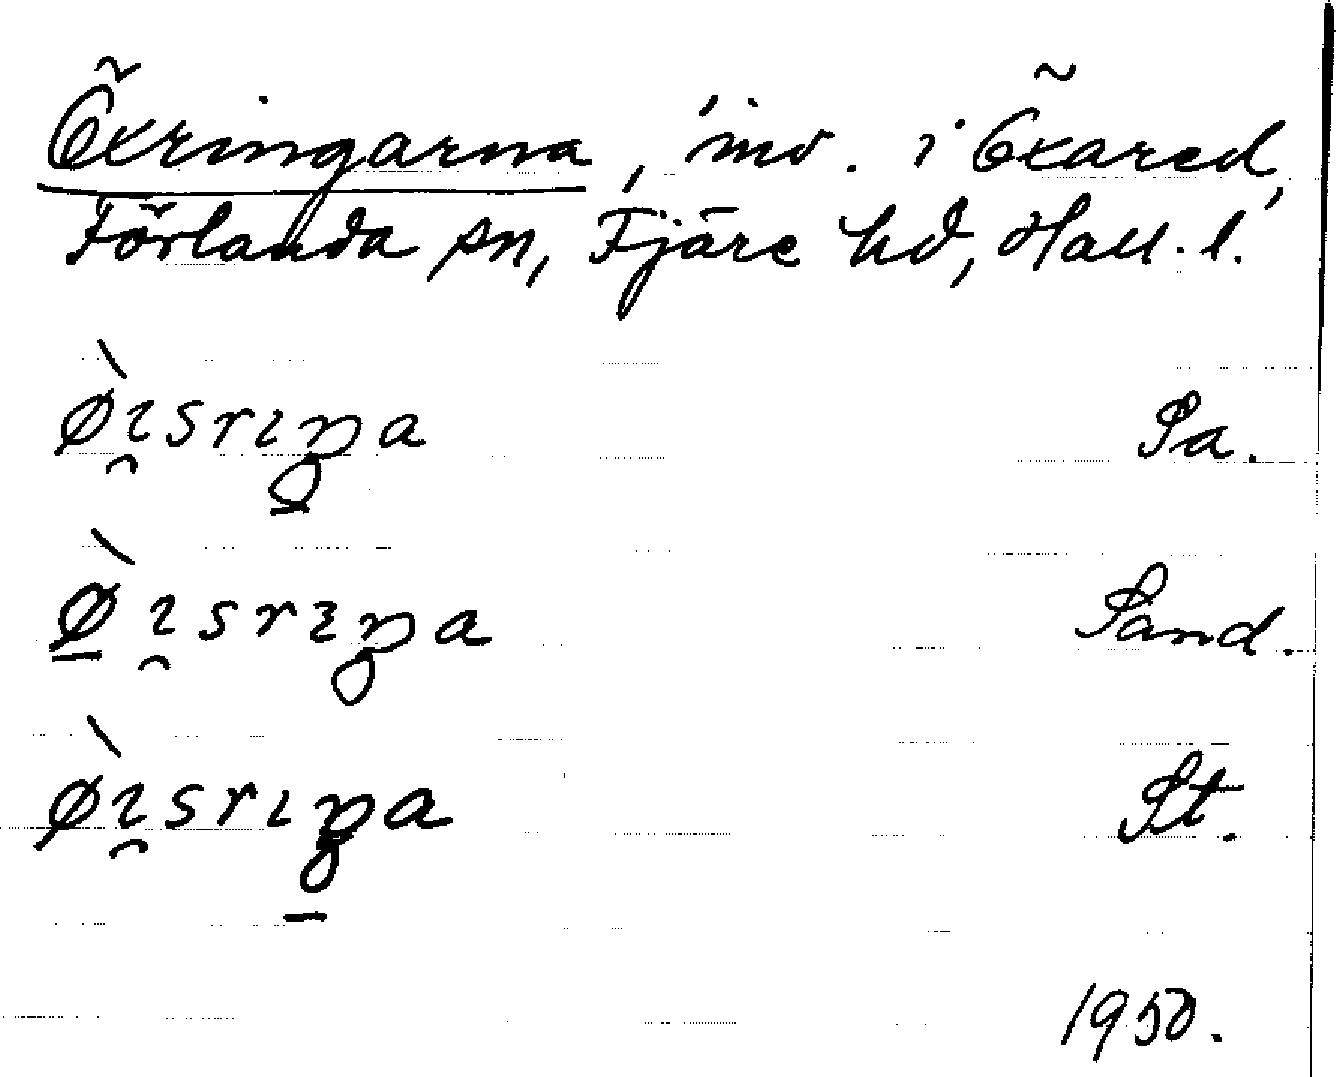 Öxringarna, inv. i Öxared,
Förlanda sn, Fjäre hd, Hall. l.
ø̀ı̯srıŋa Sa.
ø̀ı̯srıŋa Sand.
ø̀ı̯srıŋa St.
1950.